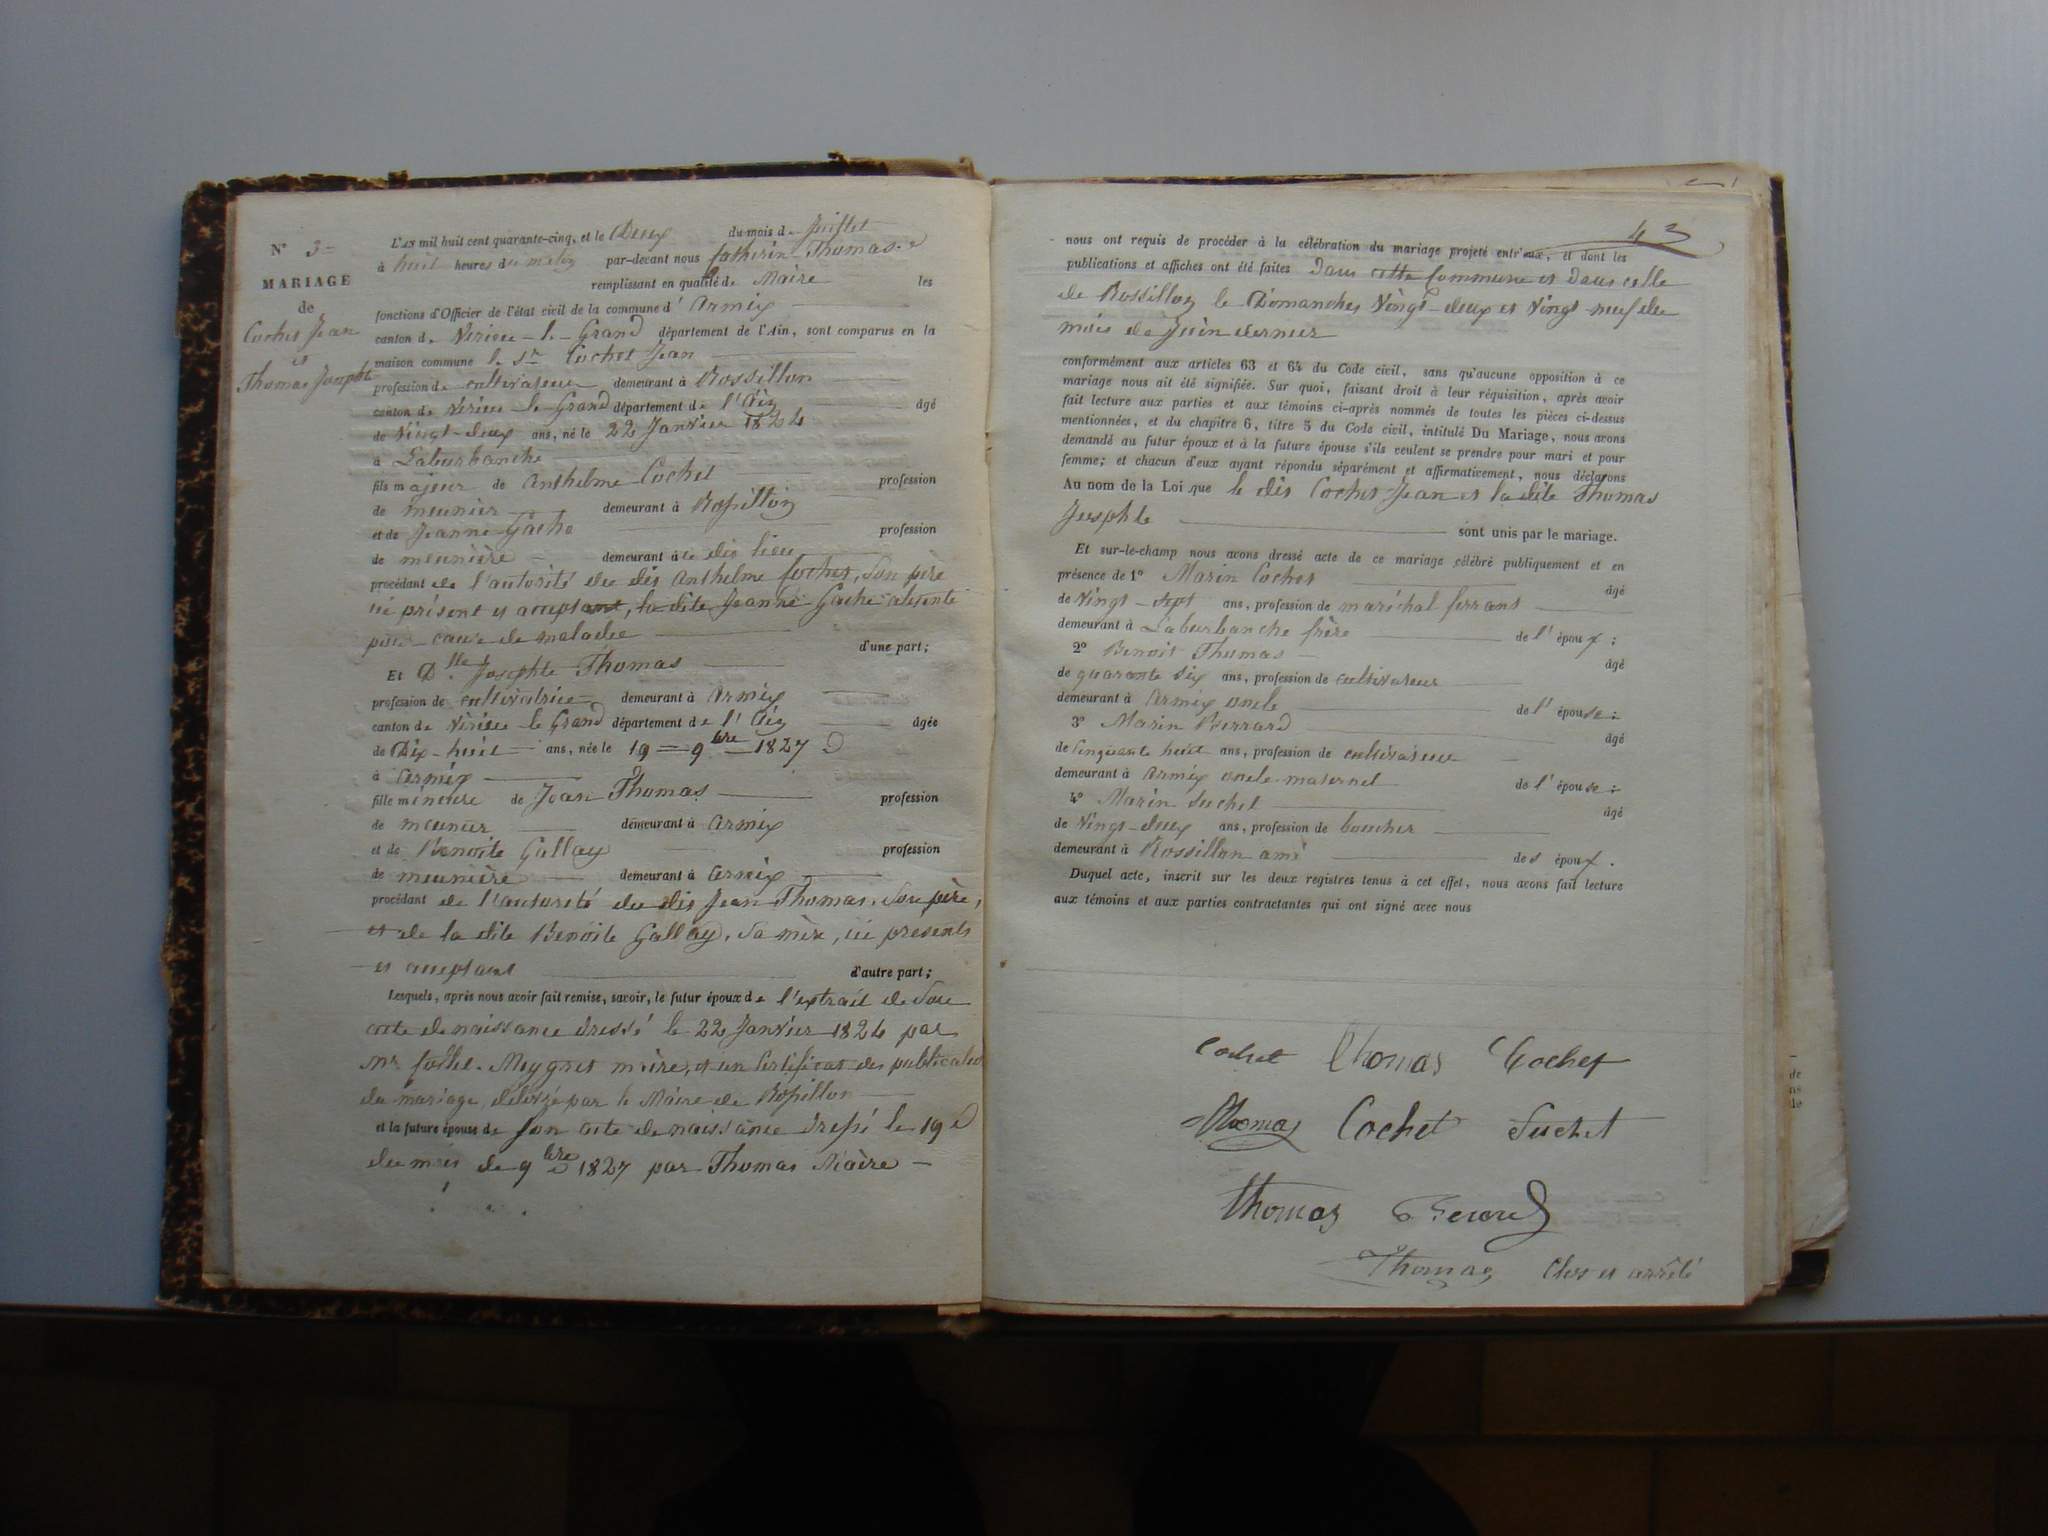 N° 3=
MARIAGE
de
Cochet Jean
et
Thomas Josephte
L'AN mil huit cent quarante-cinq, et le Deux du mois de Juillet
à huit heures du matin par-devant nous Thomas
remplissant en qualité de Maire les
fonctions d'Officier de l'état civil de la commune d'Armix
canton de Virieu-le-Grand département de l'Ain, sont comparus en la
maison commune le Sr Cochet Jean
profession de cultivateur demeurant à Rossillon
canton de Virieu-le-Grand département de l'Ain âgé
de Vingt-deux ans, né le 22 Janvier 1824
à Laburbanche
fils majeur de Anthelme Cochet profession
de meunier demeurant à Rossillon
et de Jeanne Gache profession
de meunière demeurant à ce dit lieu
procédant de l'autorité du dit Anthelme Cochet, Son père
ici présent et acceptant, la dite Jeanne Gache absente
pour cause de maladie
d'une part;
Et Dlle Josephte Thomas
profession de cultivatrice demeurant à Armix
canton de Virieu-le-Grand département de l'Ain âgée
de Dix-huit ans, née le 19 = 9bre 1827
à Armix
fille mineure de Jean Thomas profession
de meunier demeurant à Armix
et de Benoite Gallay profession
de meunière demeurant à Armix
procédant de l'autorité du dit Jean Thomas, Son père,
et de la dite Benoite Gallay, Sa mère, ici présents
et acceptant d'autre part;
Lesquels, après nous avoir fait remise, savoir, le futur époux de l'extrait de Son
acte de naissance dressé le 22 Janvier 1824 par
Mr Meygret maire, et un Certificat des publications
du mariage, délivré par le Maire de Rossillon
et la future épouse de Son acte de naissance dressé le 19
du mois de 9bre 1827 par Thomas Maire
43
nous ont requis de procéder à la célébration du mariage projeté entr'eux, et dont les
publications et affiches ont été faites Dans cette Commune et Dans celle
de Rossillon le Dimanches Vingt-deux et Vingt-neuf du
mois de Juin dernier
conformément aux articles 63 et 64 du Code civil, sans qu'aucune opposition à ce
mariage nous ait été signifiée. Sur quoi, faisant droit à leur réquisition, après avoir
fait lecture aux parties et aux témoins ci-après nommés de toutes les pièces ci-dessus
mentionnées, et du chapitre 6, titre 5 du Code civil, intitulé Du Mariage, nous avons
demandé au futur époux et à la future épouse s'ils veulent se prendre pour mari et pour
femme; et chacun d'eux ayant répondu séparément et affirmativement, nous déclarons
Au nom de la Loi que le dit Cochet Jean et la dite Thomas
Josephte sont unis par le mariage.
Et sur-le-champ nous avons dressé acte de ce mariage célébré publiquement et en
présence de 1° Marin Cochet âgé
de Vingt-sept ans, profession de maréchal ferrant
demeurant à Laburbanche frère de l'époux;
2° Benoit Thomas âgé
de quarante six ans, profession de cultivateur
demeurant à Armix oncle de l'épouse;
3° Marin Berrard âgé
de Cinquante huit ans, profession de cultivateur
demeurant à Armix oncle maternel de l'épouse;
4° Marin Suchet âgé
de Vingt-deux ans, profession de boucher
demeurant à Rossillon ami des époux.
Duquel acte, inscrit sur les deux registres tenus à cet effet, nous avons fait lecture
aux témoins et aux parties contractantes qui ont signé avec nous
Cochet Thomas Cochet
Thomas Cochet Suchet
Thomas
Thomas Clos et arrêté